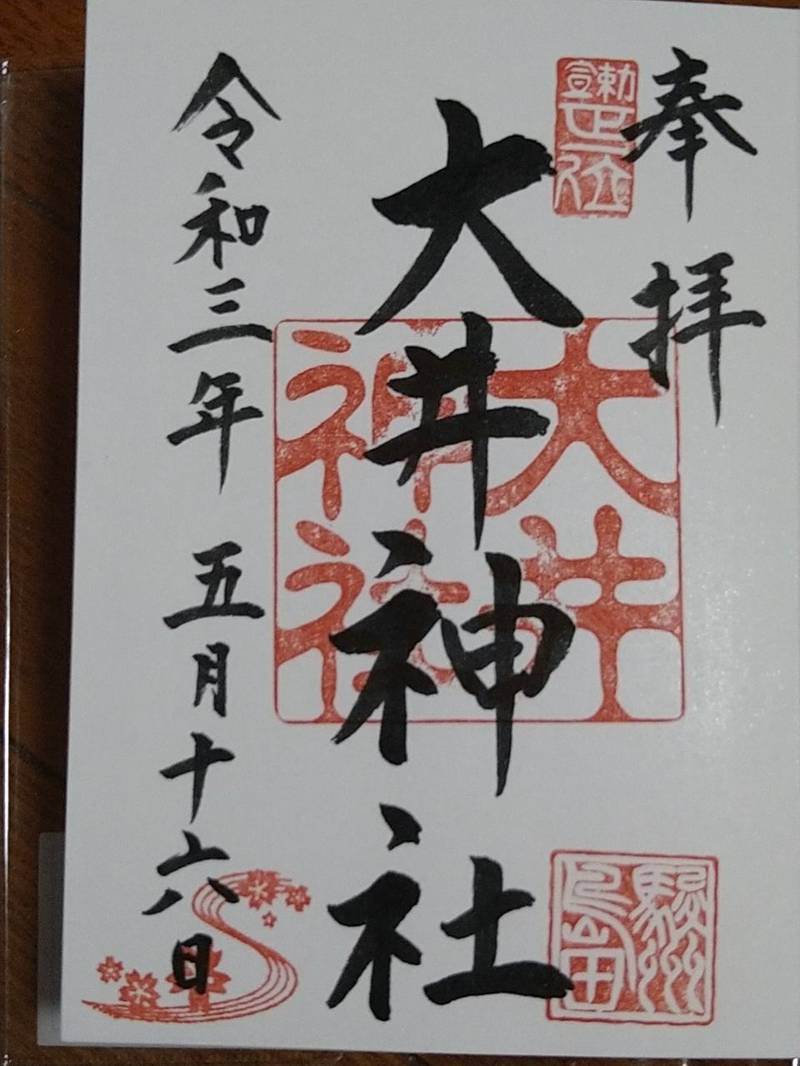 奉拝
勅宣
正一位
大井神社
大井
神社
駿州
島田
令和三年 五月十六日